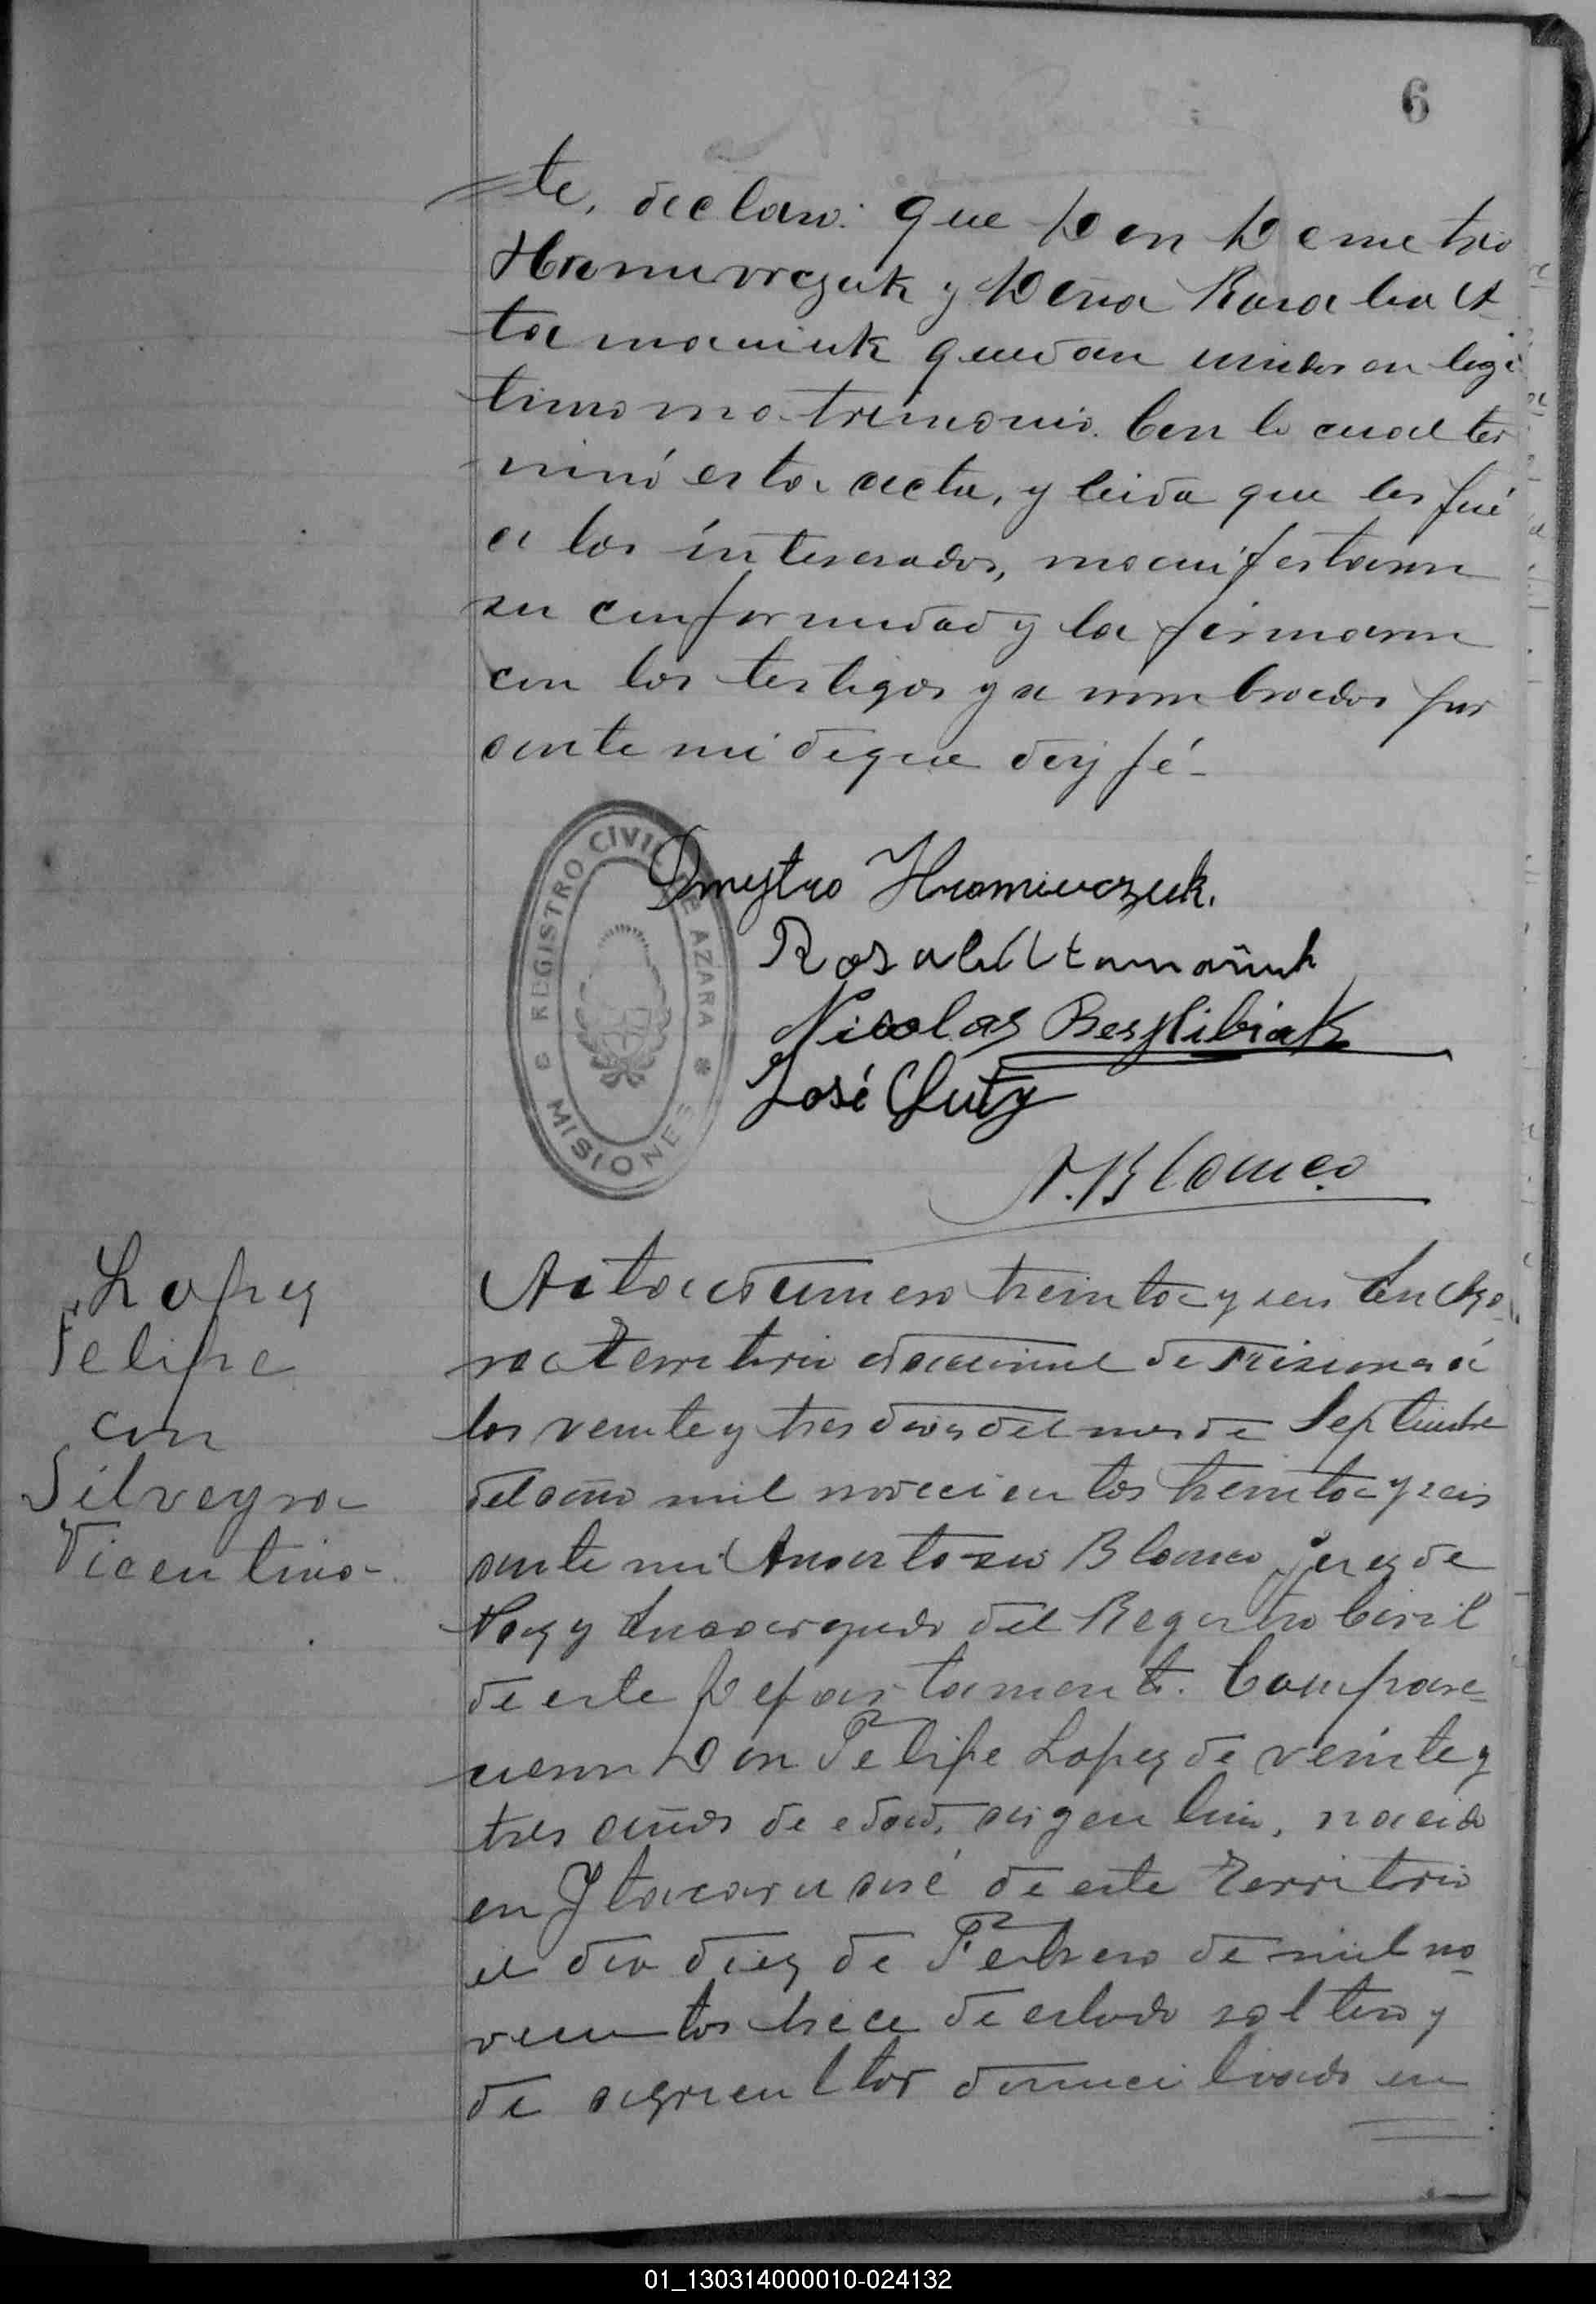 6
te, declaro: que Don Demetrio
Hromiwczuk y Doña Rosalia A
tamaniuk quedan unidos en legi
timo matrimonio. Con lo cual ter
minó esta acta, y leida que les fué
a los interesados, manifestaron
su conformidad y la firmaron
con los testigos ya nombrados por
ante mi de que doy fé-
REGISTRO CIVIL DE AZARA
MISIONES
Dmytro Hromiwczuk.
Rosalia Atamañuk
Nicolas
José
A. Blanco
Lopez
Felipe
con
Silveyra
Vicentina-
Acta número treinta y seis En Apo
Territorio Nacional de Misiones á
los veinte y tres dias del mes de Septiembre
del año mil novecientos treinta y seis
ante mi Blanco Juez de
Paz y Encargado del Registro Civil
de este Departamento. Compare-
cieron Don Felipe Lopez de veinte y
tres años de edad, argentino, nacido
en Itacaruaré de este Territorio
el dia diez de Febrero de mil no-
vecientos trece de estado soltero y
de agricultor domiciliado en
01_130314000010-024132